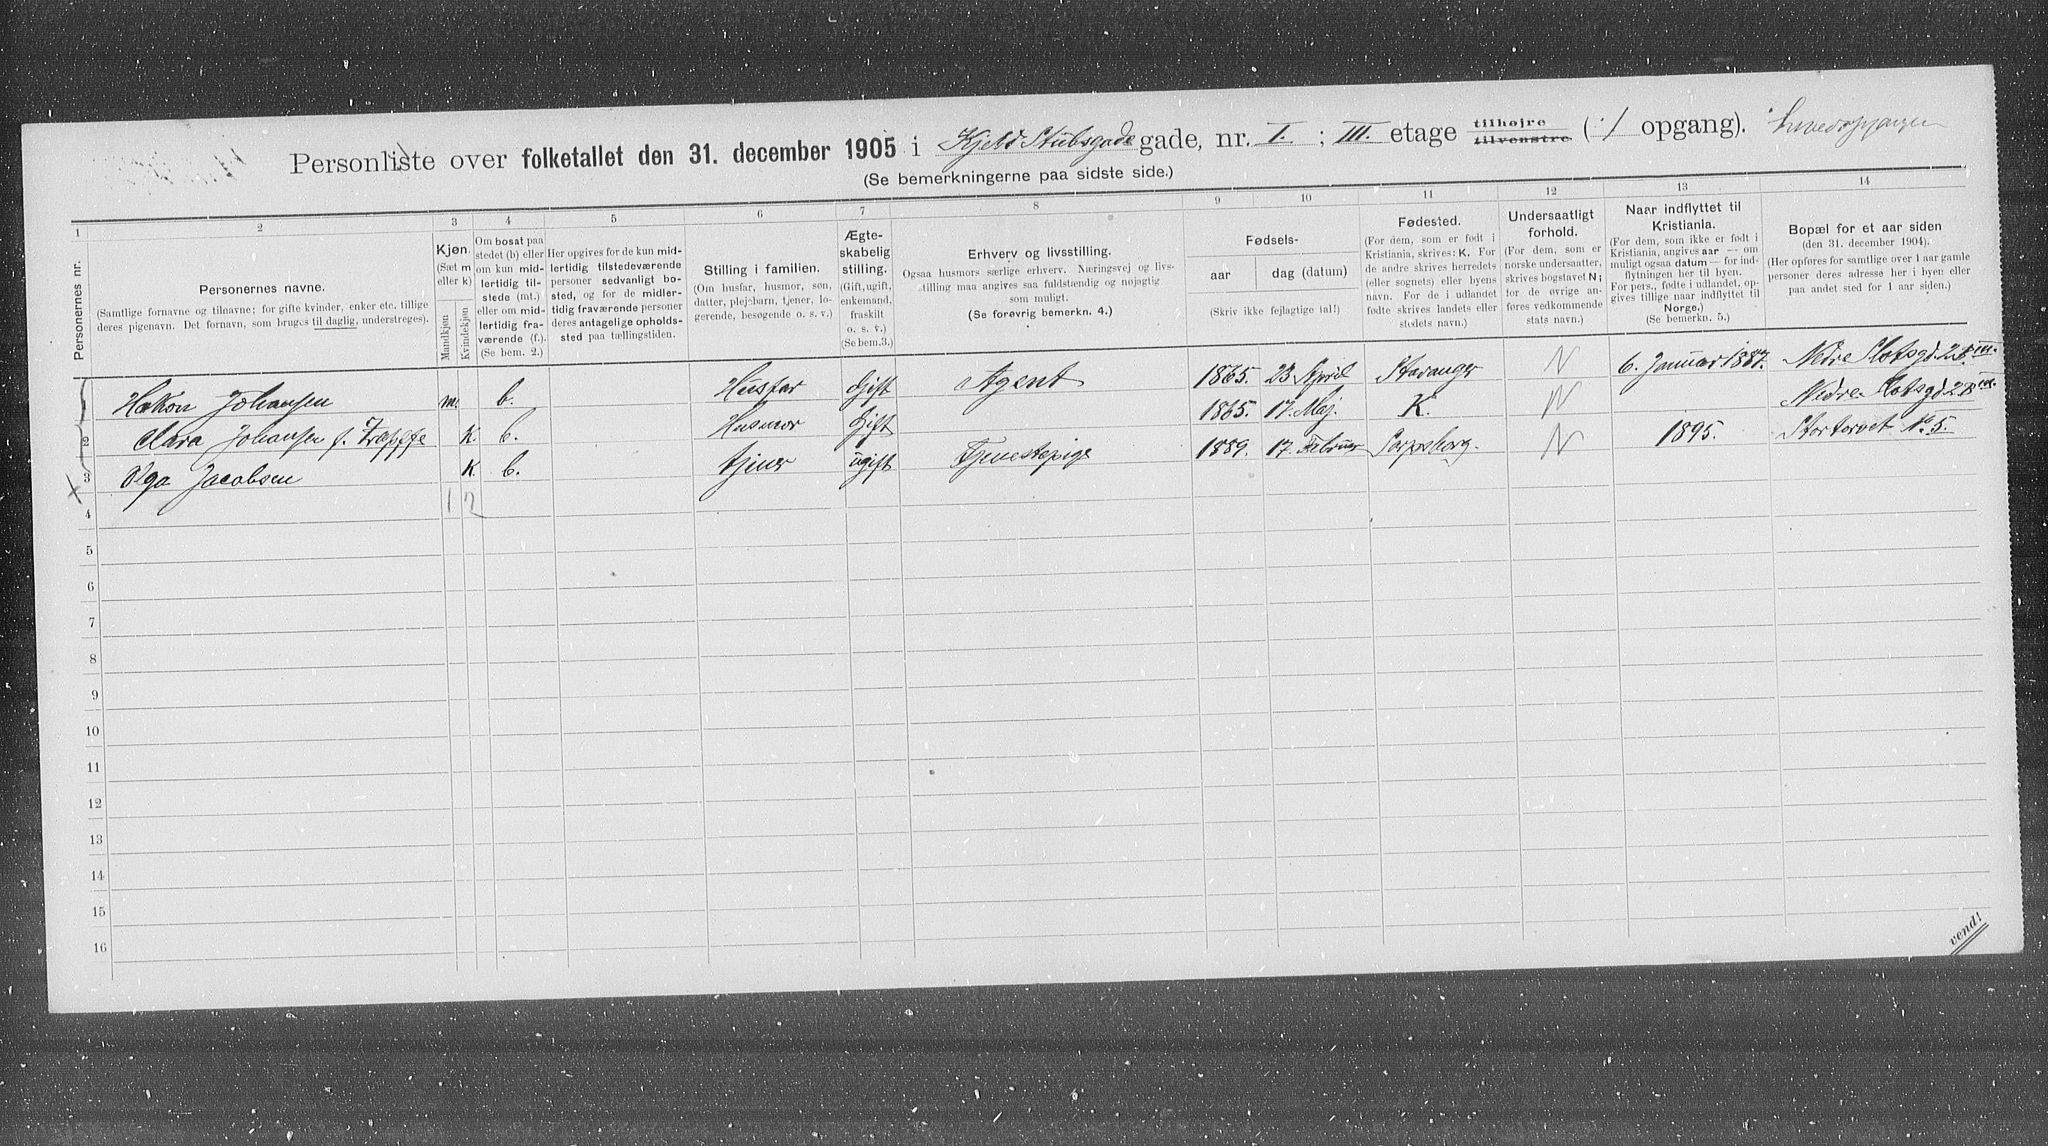 Personliste over folketallet den 31. december 1905 i Kjeld Stubsgade gade, nr. I. ; III. etage tilhøjre tilvenstre ( ·/· opgang).
(Se bemerkningerne paa sidste side.)
1 2 3 4 5 6 7 8 9 10 11 12 13 14
Personernes nr.
Personernes navne.
(Samtlige fornavne og tilnavne; for gifte kvinder, enker etc. tillige
deres pigenavn. Det fornavn, som bruges til daglig, understreges).
Kjøn.
(Sæt m
eller k)
Mandkjøn
Kvindekjøn
Om bosat paa
stedet (b) eller
om kun mid-
lertidig til-
stede (mt.)
eller om mid-
lertidig fra-
værende (f.).
(Se bem. 2.)
Her opgives for de kun mid-
lertidig tilstedeværende
personer sedvanligt bo-
sted, og for de midler-
tidig fraværende personer
deres antagelige opholds-
sted paa tællingstiden.
Stilling i familien.
(Om husfar, husmor, søn,
datter, plejebarn, tjener, lo-
gerende, besøgende o. s. v.)
Ægte-
skabelig
stilling.
(Gift, ugift,
enkemand,
fraskilt
o. s. v.)
(Se bem.3.)
Erhverv og livsstilling.
Ogsaa husmors særlige erhverv. Næringsvej og livs-
stilling maa angives saa fuldstændig og nøjagtig
som muligt.
(Se forøvrig bemerkn. 4.)
Fødsels-
aar dag (datum)
(Skriv ikke fejlagtige tal!)
Fødested.
(For dem, som er født i
Kristiania, skrives: K. For
de andre skrives herredets
(eller sognets) eller byens
navn. For de i udlandet
fødte skrives landets eller
stedets navn.)
Undersaatligt
forhold.
(For dem, som er
norske undersaatter,
skrives bogstavet N;
for de øvrige an-
føres vedkommende
stats navn.)
Naar indflyttet til
Kristiania.
(For dem, som ikke er født i
Kristiania, angives aar — om
muligt ogsaa datum — for ind-
flytningen her til byen.
For pers., fødte i udlandet, op-
gives tillige naar indflyttet til
Norge.)
(Se bemerkn. 5.)
Bopæl for et aar siden
(den 31. december 1904).
(Her opføres for samtlige over 1 aar gamle
personer deres adresse her i byen eller
paa andet sted for 1 aar siden.)
1 Hakon Johansen m. b. Husfar Gift Agent 1865. 23 April Stavanger N 6. Januar 1887. Nedre Slotsgd.
2 Clara Johansen f. K. b. Husmor Gift 1865. 17. Maj. K. N Nedre Slotsgd
3 Olga Jacobsen K. b. tjener ugift Tjenestepige 1889. 17. Februar Sarpsborg. N 1895. Stortorvet No 5.
1 2
4
5
6
7
8
9
10
11
12
13
14
15
16
vend!